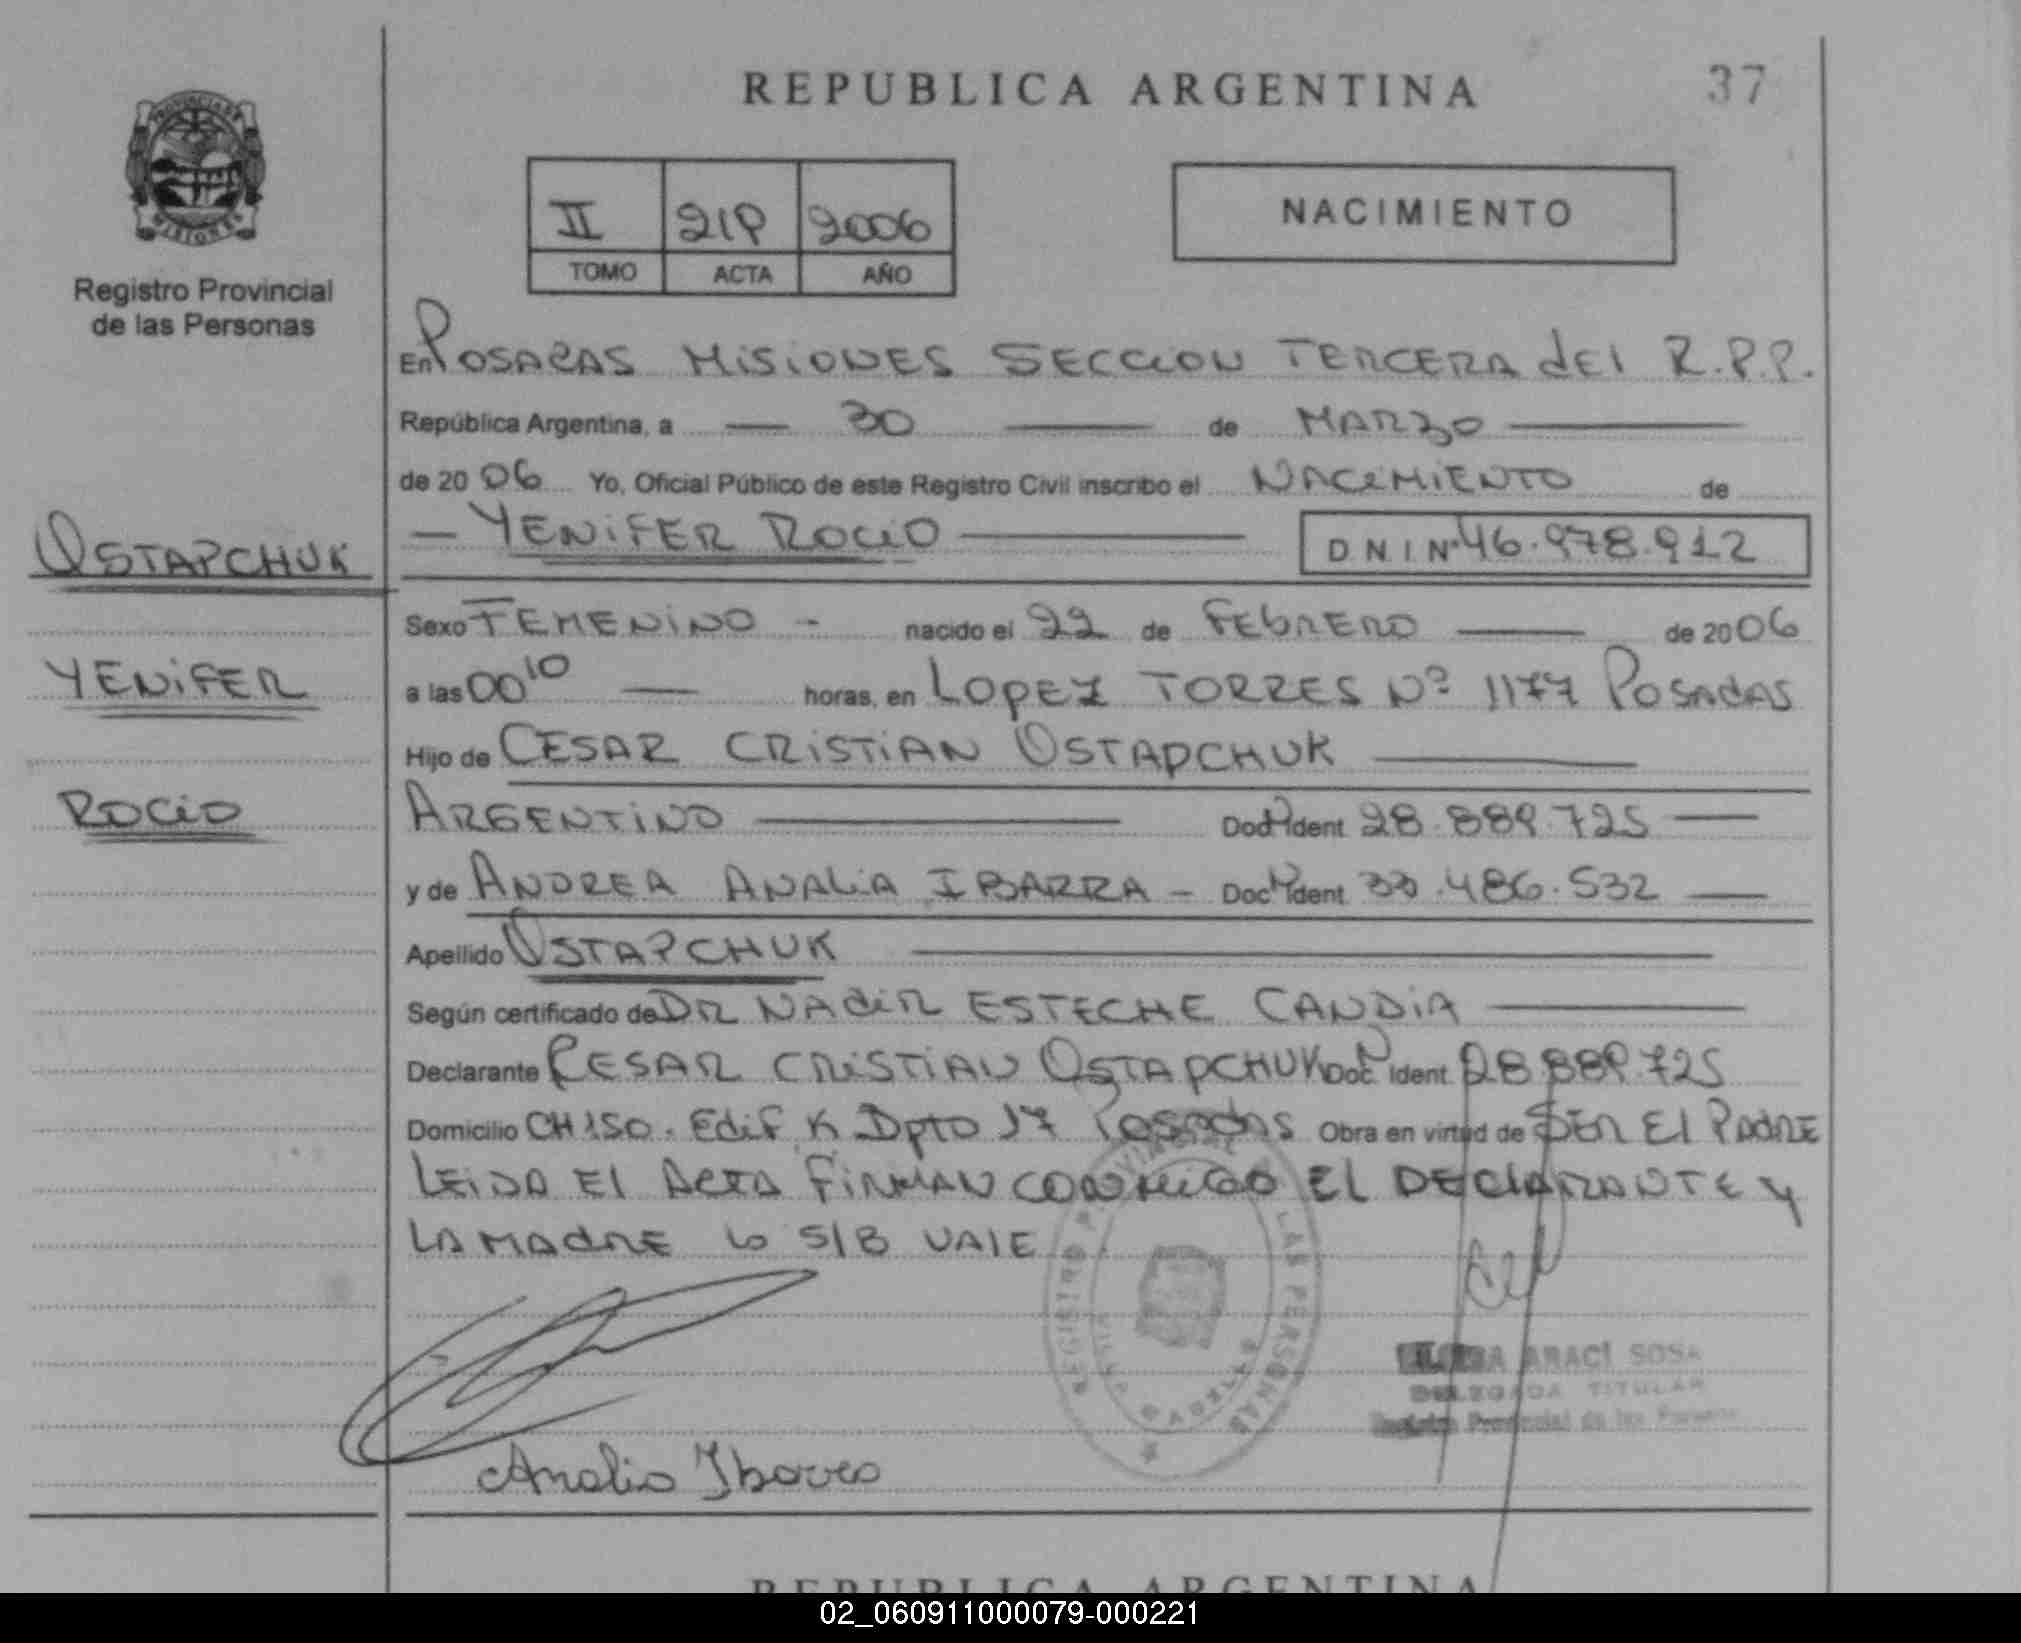 REPUBLICA ARGENTINA
37
PROVINCIA DE
MISIONES
Registro Provincial
de las Personas
II 219 2006
TOMO ACTA AÑO
NACIMIENTO
En POSADAS MISIONES SECCION TERCERA del R.P.P.
República Argentina, a — 30 — de MARZO —
de 20 06 Yo, Oficial Público de este Registro Civil inscribo el NACIMIENTO de
— YENIFER ROCIO — D N I Nº 46.978.912
OSTAPCHUK
YENIFER
ROCIO
Sexo FEMENINO - nacido el 22 de FEBRERO — de 20 06
a las 00 10 — horas, en LOPEZ TORRES Nº 1177 POSADAS
Hijo de CESAR CRISTIAN OSTAPCHUK —
ARGENTINO — Doc Nº Ident 28.889.725 —
y de ANDREA ANALIA IBARRA - Doc Nº Ident 33.486.532 —
Apellido OSTAPCHUK —
Según certificado de DR NADIR ESTECHE CANDIA —
Declarante CESAR CRISTIAN OSTAPCHUK Doc Nº Ident 28.889.725
Domicilio CH 150. Edif K Dpto 17 Posadas Obra en virtud de SER El PADRE
LEIDA El ACTA FIRMAN CONMIGO EL DECLARANTE Y
LA MADRE lo S/B VALE
REGISTRO PROVINCIAL DE LAS PERSONAS
ARACI SOSA
DELEGADA TITULAR
Registro Provincial de las Personas
Analia Ibarra
REPUBLICA ARGENTINA
02_060911000079-000221